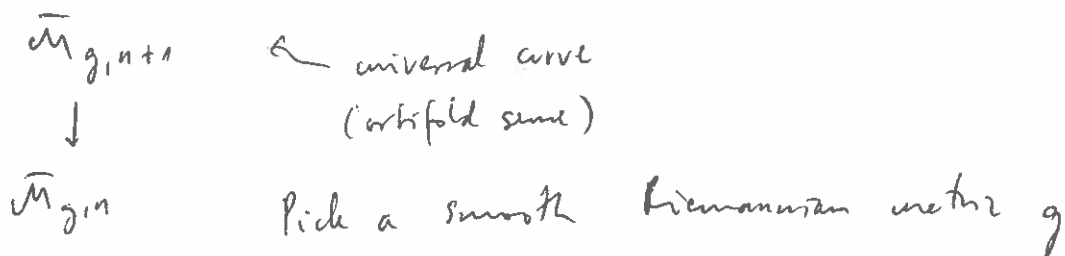 M̄_{g,n+1} ← universal curve
↓ (orbifold sense)
M̄_{g,n} Pick a smooth Riemannian metric g